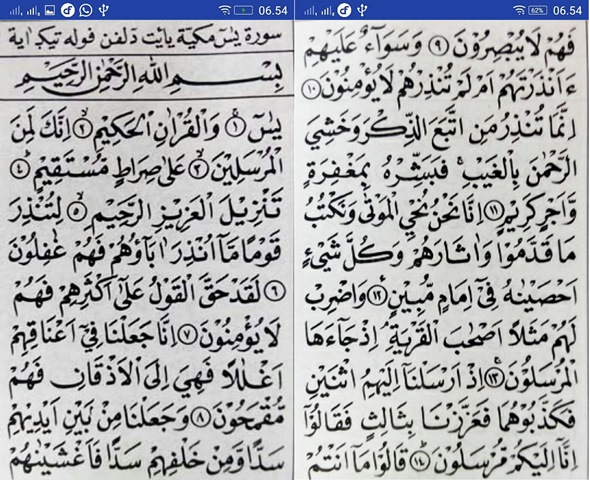 06.54
سورة يسٓ مكية
بِسْمِ اللهِ الرَّحْمٰنِ الرَّحِيْمِ
يٰسٓ ۝١ وَالْقُرْاٰنِ الْحَكِيْمِ ۝٢ اِنَّكَ لَمِنَ
الْمُرْسَلِيْنَ ۝٣ عَلٰى صِرَاطٍ مُّسْتَقِيْمٍ ۝٤
تَنْزِيْلَ الْعَزِيْزِ الرَّحِيْمِ ۝٥ لِتُنْذِرَ
قَوْمًا مَّآ اُنْذِرَ اٰبَآؤُهُمْ فَهُمْ غٰفِلُوْنَ
۝٦ لَقَدْ حَقَّ الْقَوْلُ عَلٰٓى اَكْثَرِهِمْ فَهُمْ
لَا يُؤْمِنُوْنَ ۝٧ اِنَّا جَعَلْنَا فِيْٓ اَعْنَاقِهِمْ
اَغْلٰلًا فَهِيَ اِلَى الْاَذْقَانِ فَهُمْ
مُّقْمَحُوْنَ ۝٨ وَجَعَلْنَا مِنْ بَيْنِ اَيْدِيْهِمْ
سَدًّا وَّمِنْ خَلْفِهِمْ سَدًّا فَاَغْشَيْنٰهُمْ
62% 06.54
فَهُمْ لَا يُبْصِرُوْنَ ۝٩ وَسَوَآءٌ عَلَيْهِمْ
ءَاَنْذَرْتَهُمْ اَمْ لَمْ تُنْذِرْهُمْ لَا يُؤْمِنُوْنَ ۝١٠
اِنَّمَا تُنْذِرُ مَنِ اتَّبَعَ الذِّكْرَ وَخَشِيَ
الرَّحْمٰنَ بِالْغَيْبِ ۚ فَبَشِّرْهُ بِمَغْفِرَةٍ
وَّاَجْرٍ كَرِيْمٍ ۝١١ اِنَّا نَحْنُ نُحْيِ الْمَوْتٰى وَنَكْتُبُ
مَا قَدَّمُوْا وَاٰثَارَهُمْ وَكُلَّ شَيْءٍ
اَحْصَيْنٰهُ فِيْٓ اِمَامٍ مُّبِيْنٍ ۝١٢ وَاضْرِبْ
لَهُمْ مَّثَلًا اَصْحٰبَ الْقَرْيَةِ ۘ اِذْ جَآءَهَا
الْمُرْسَلُوْنَ ۝١٣ اِذْ اَرْسَلْنَآ اِلَيْهِمُ اثْنَيْنِ
فَكَذَّبُوْهُمَا فَعَزَّزْنَا بِثَالِثٍ فَقَالُوْٓا
اِنَّآ اِلَيْكُمْ مُّرْسَلُوْنَ ۝١٤ قَالُوْا مَآ اَنْتُمْ